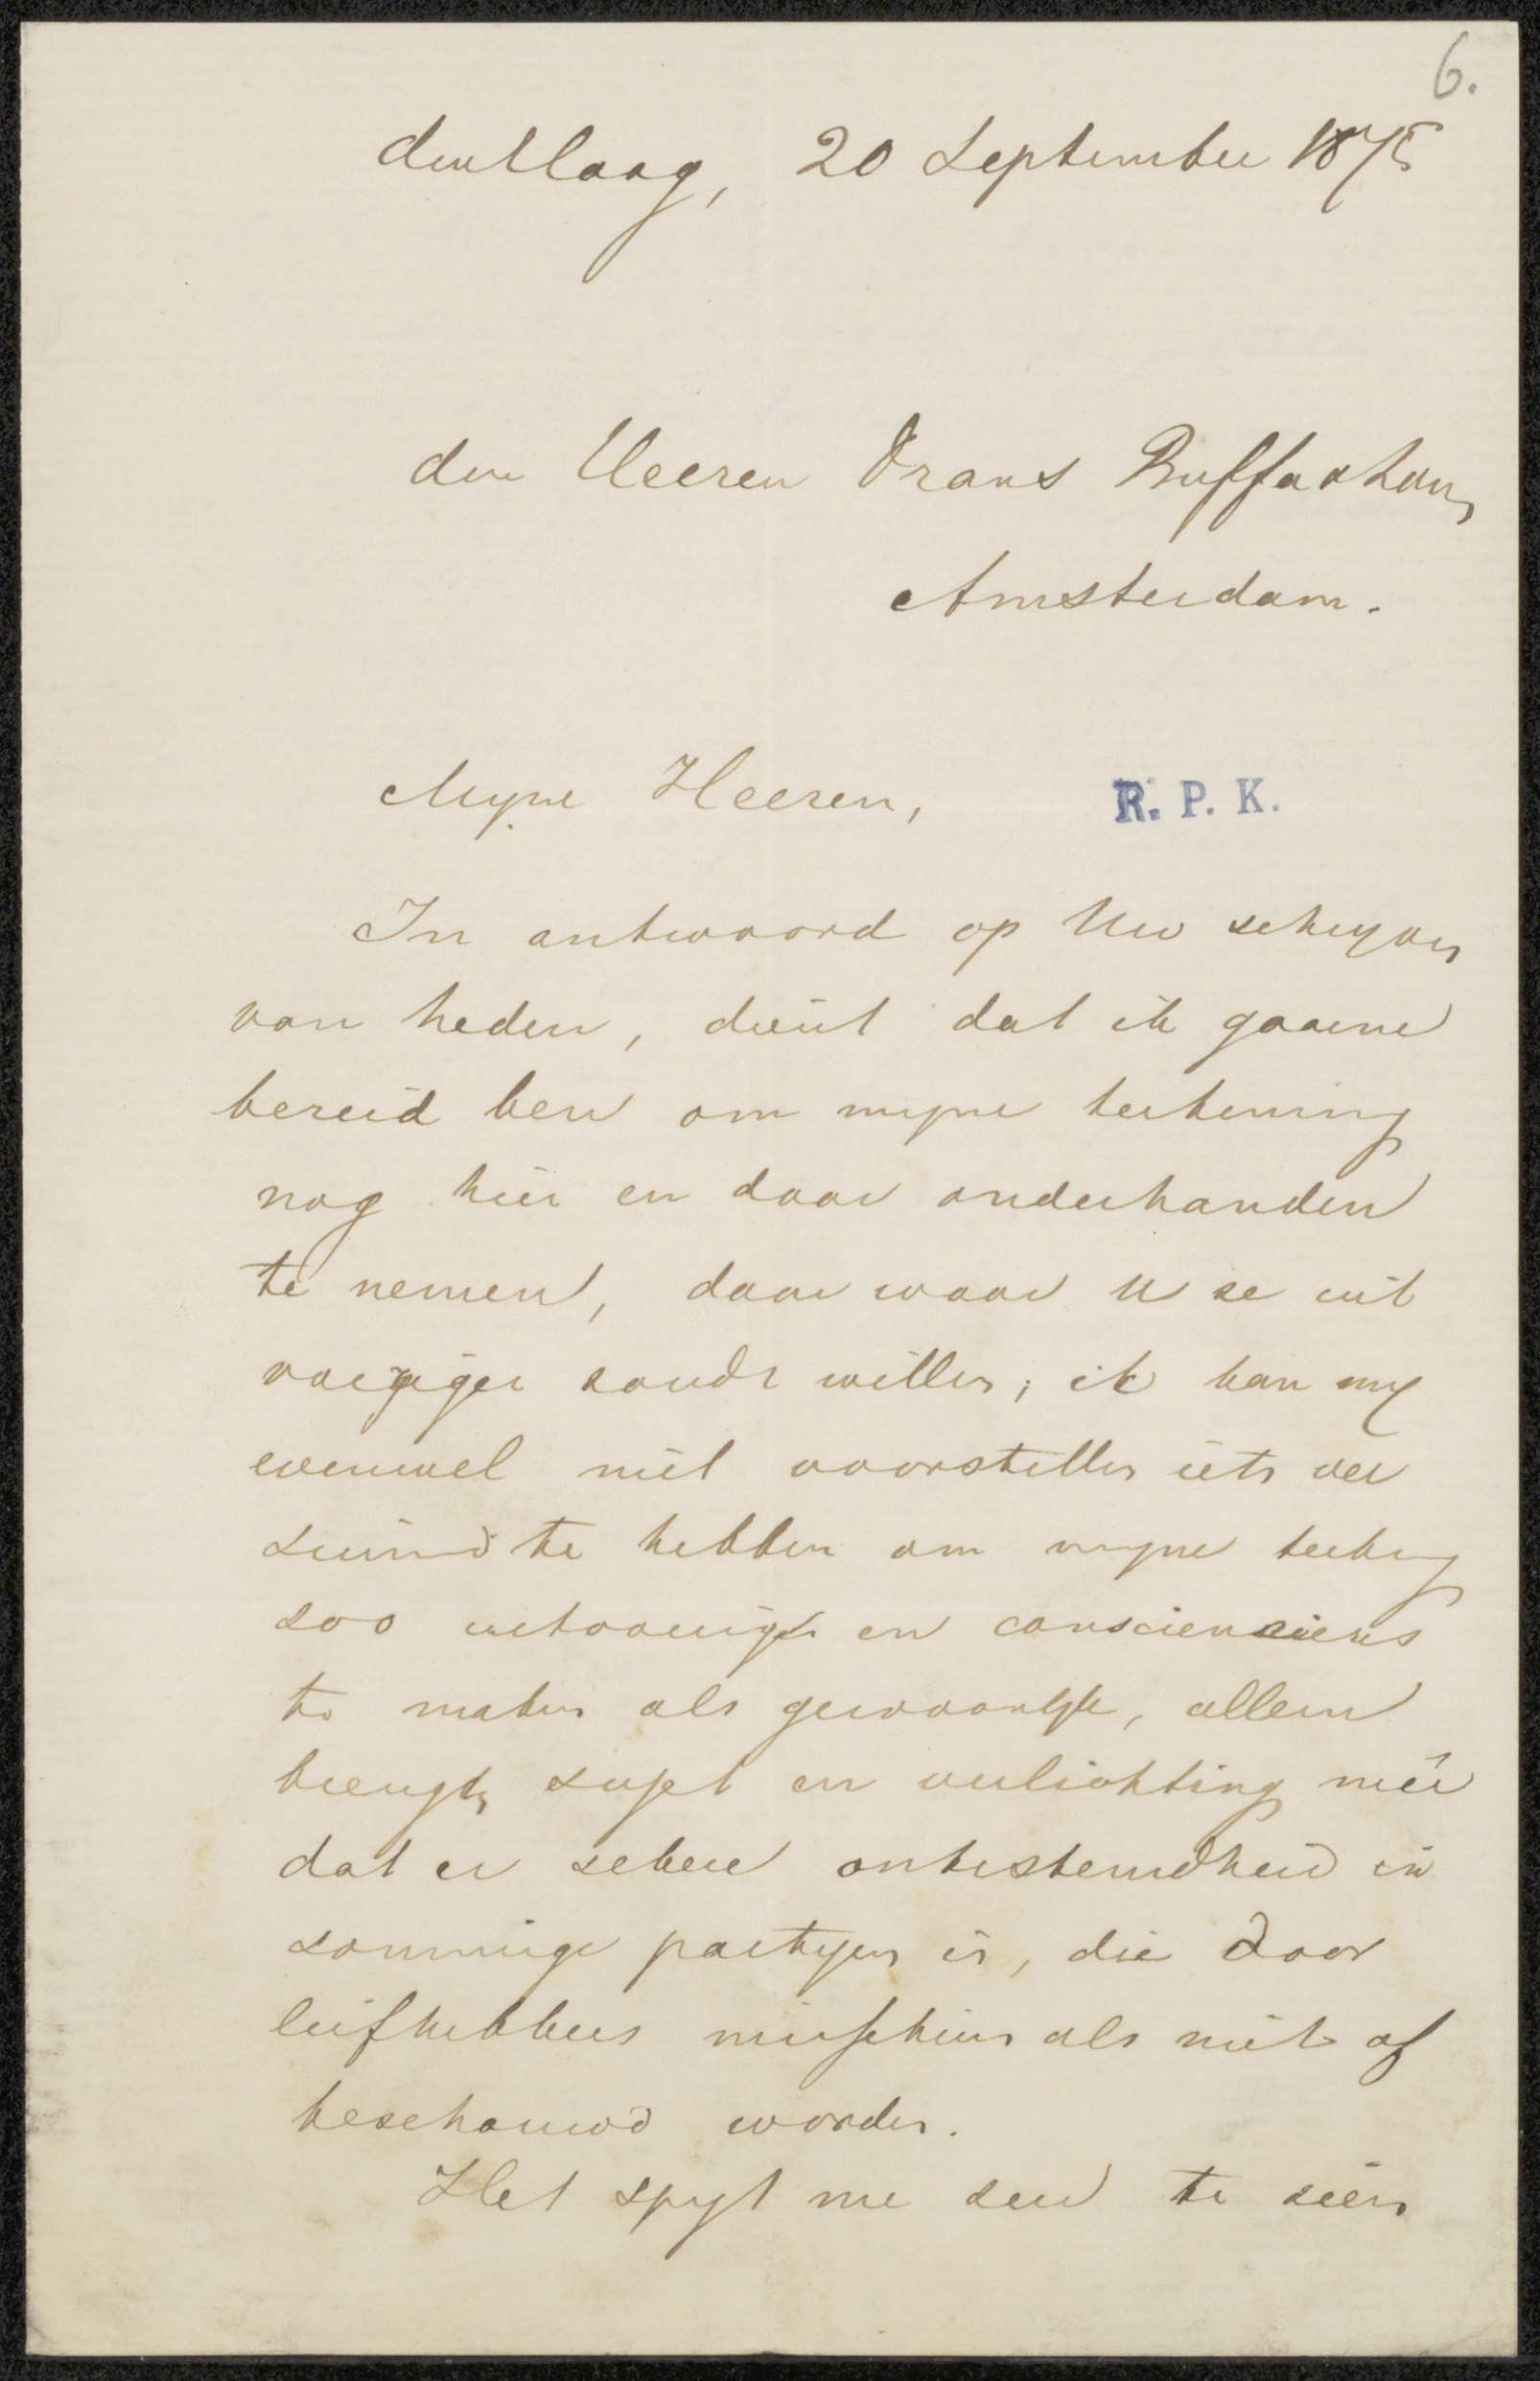 6.
den Haag, 20 September 1875
den Heeren Frans Buffa & Zonen
Amsterdam.
Myne Heeren,
R. P. K.
In antwoord op Uw schryven
van heden, dient dat ik gaarne
bereid ben om myne teekening
nog hier en daar onderhanden
te nemen, daar waar U ze uit
voeriger zoudt willen; ik kan my
evenwel niet voorstellen iets ver
zuimd te hebben om myne teekening
zoo en consciencieus
te maken als gewoonlyk, alleen
brengt sujet en verlichting mee
dat er zekere onbestemdheid in
sommige partyen is, die door
liefhebbers misschien als niet af
beschouwd worden.
Het spyt me zeer te zien